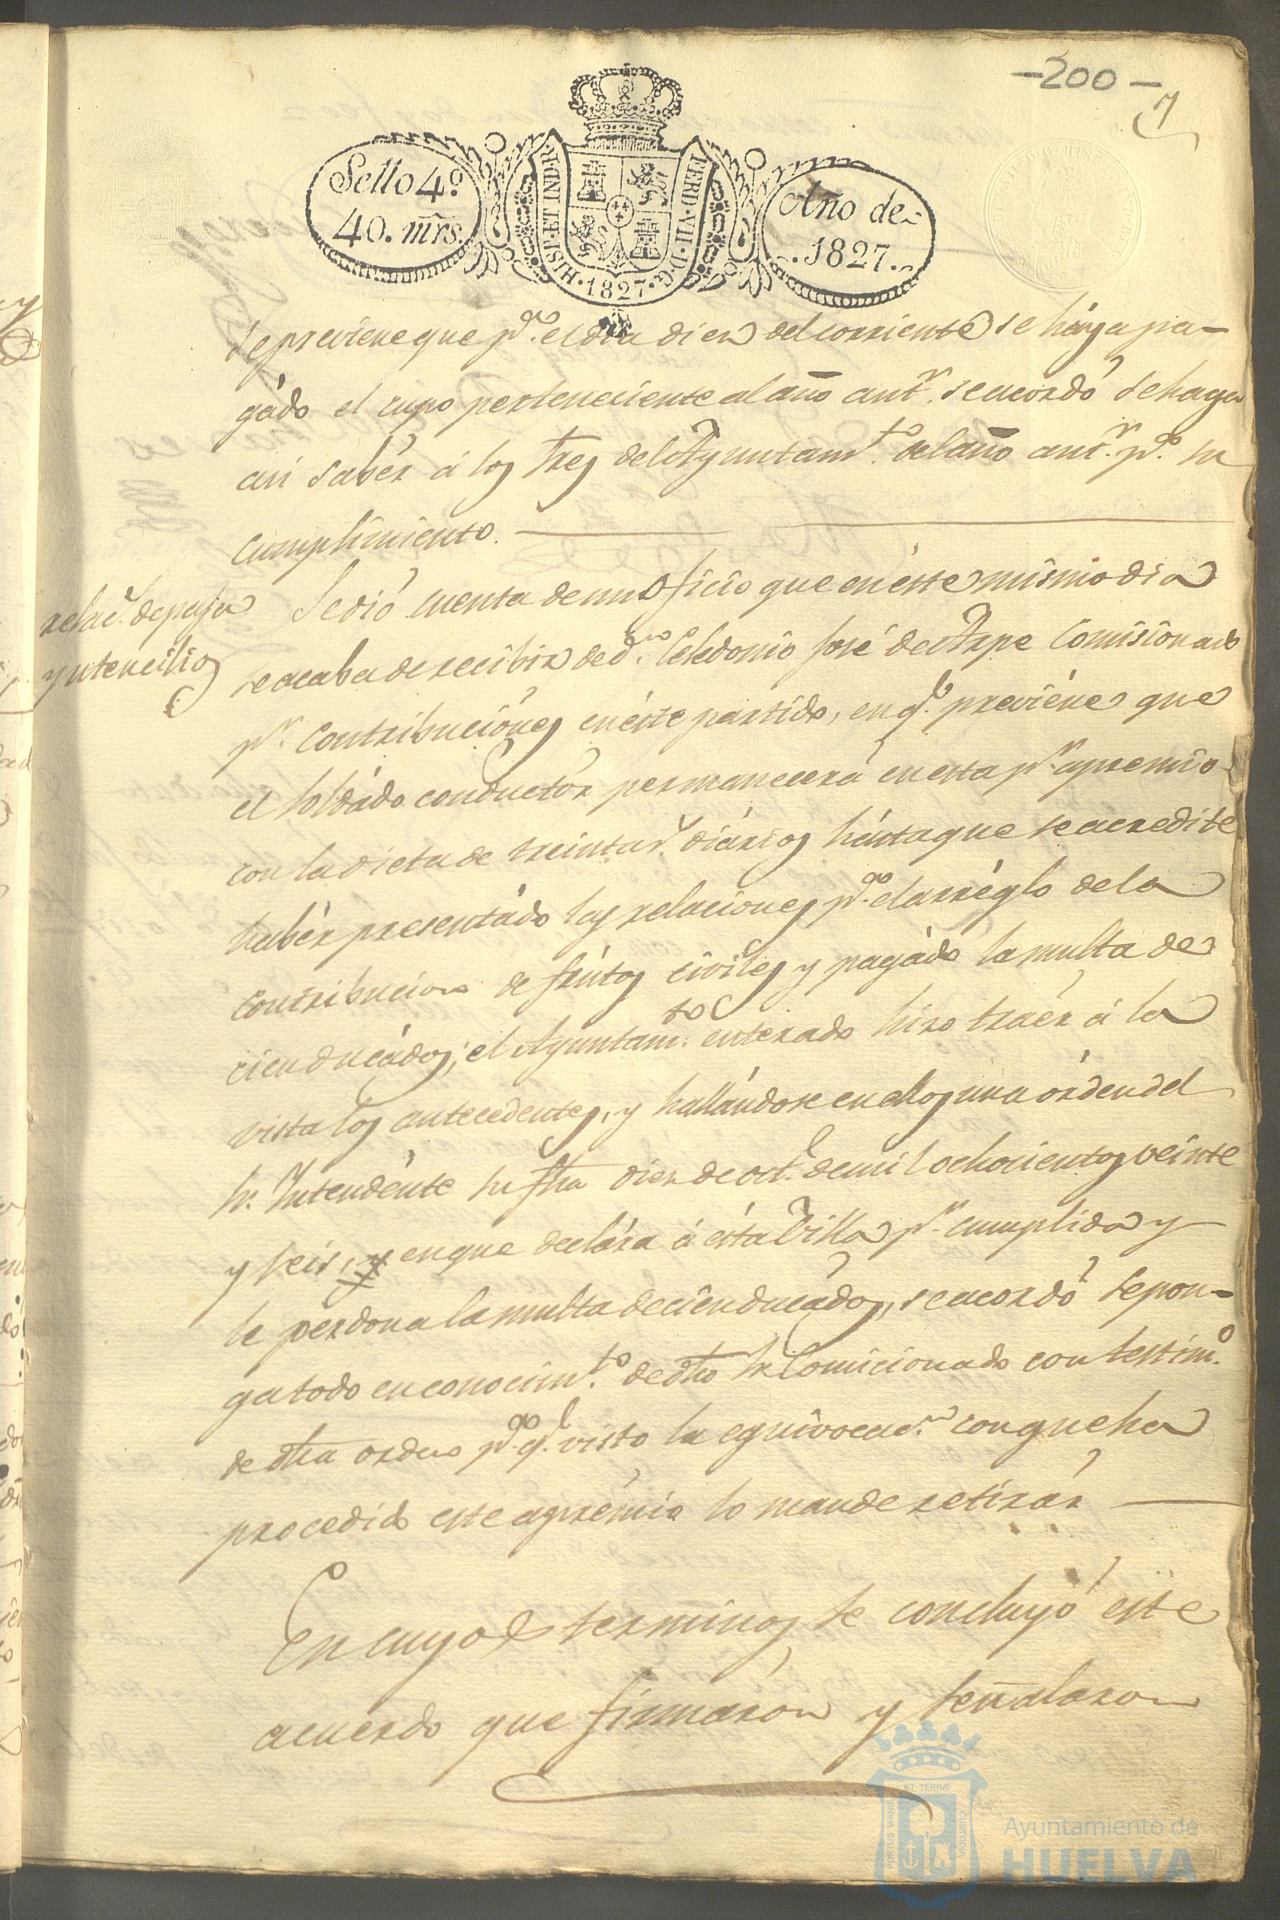 -200-
7
Sello 4º
40. mrs.
HISP. ET IND. R.
FERD. VII. D. G.
1827.
Año de
1827.
se previene que pª. el dia diez del corriente se haya pa-
gádo el cupo perteneciente al año antr. se acordó se haga
asi sabér á los Sres del Ayuntamto. del año antr. pª. su
cumplimiento.
relacs. de paja
y utencilios
Se dió cuenta de un Oficio que en éste mismo dia
se acaba de recibir de dn. Celedonio José de Arpe Comisionado
pr. Contribuciónes en éste partido, en qe. previéne que
el soldádo conductór permanecerá en esta pr. apremio
con la dieta de treinta rs. diários hásta que se acredite
habér presentádo las relaciones pª. el arréglo de la
contribucion de frútos civíles y pagádo la multa de
cien ducádos; el Ayuntamto. enterado hizo traér á la
vista los antecedentes, y hallándose en ellos una órden del
Sr. Intendénte su fha diez de oct. de mil ochocientos veinte
y seis, y en que declára á ésta Villa pr. cumplida y
le perdona la multa de cien ducádos, se acordó se pon-
ga todo en conocimto. de dho Sr. Comicionado con testimo.
de dha orden pª. qe. visto la equivocacn. con que ha
procedido este aprémio lo mande retirár
En cuyos terminos se concluyó éste
acuerdo que firmáron y señalaron
ET TERRÆ
PORTUS MARIS
CUSTODIA
Ayuntamiento de
HUELVA